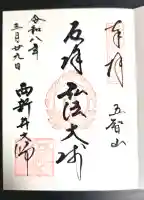 奉拝
五智山
厄除
弘法大師
西新井大師
令和八年
三月廿九日